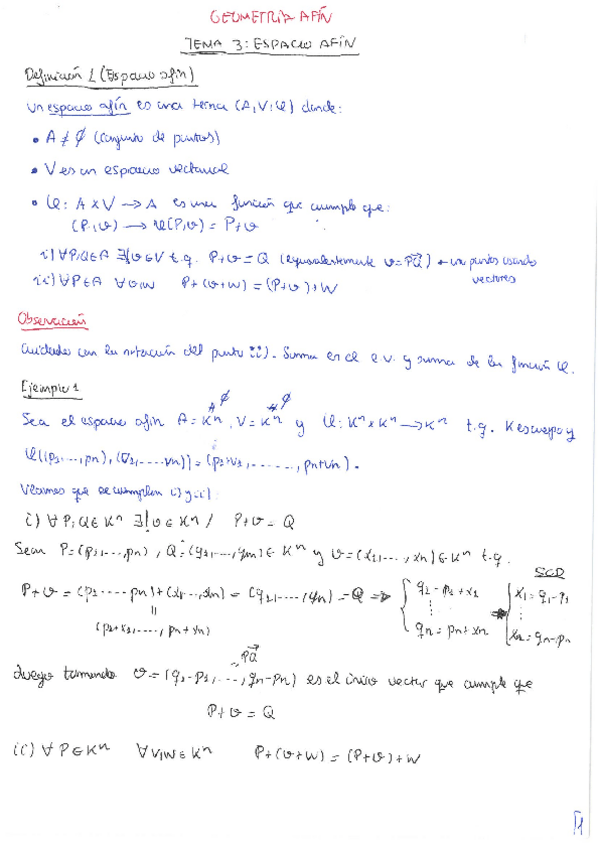 GEOMETRÍA AFÍN
TEMA 3: ESPACIO AFÍN
Definición 1 (Espacio afín)
Un espacio afín es una terna (A,V,φ) donde:
• A ≠ ∅ (conjunto de puntos)
• V es un espacio vectorial
• φ: A x V → A es una función que cumple que:
(P,v) → φ(P,v) = P+v
i) ∀P,Q∈A ∃!v∈V t.q. P+v=Q (equivalentemente v=PQ⃗) ← un puntos usando
vectores
ii) ∀P∈A ∀v,w P+(v+w)=(P+v)+w
Observación
Cuidado con la notación del punto ii). Suma es el e.v. y suma de la función φ.
Ejemplo 1
≠∅ ≠∅
Sea el espacio afín A=Kⁿ, V=Kⁿ y φ: KⁿxKⁿ → Kⁿ t.q. K es cuerpo y
φ((p1,...,pn),(v1,...,vn))=(p1+v1,......,pn+vn).
Veamos que se cumplen i) y ii):
i) ∀P,Q∈Kⁿ ∃!v∈Kⁿ / P+v=Q
Sean P=(p1,...,pn), Q=(q1,...,qn)∈Kⁿ y v=(x1,...,xn)∈Kⁿ t.q.
SCD
P+v=(p1.....pn)+(x1...,xn)=(q1,...,qn)=Q ⇒ { q1=p1+x1 ⋮ qn=pn+xn ⇒ { x1=q1-p1 ⋮ xn=qn-pn
=
(p1+x1,...., pn+xn)
PQ⃗
Luego tomando v=(q1-p1,...,qn-pn) es el único vector que cumple que
P+v=Q
ii) ∀P∈Kⁿ ∀v,w∈Kⁿ P+(v+w)=(P+v)+w
1